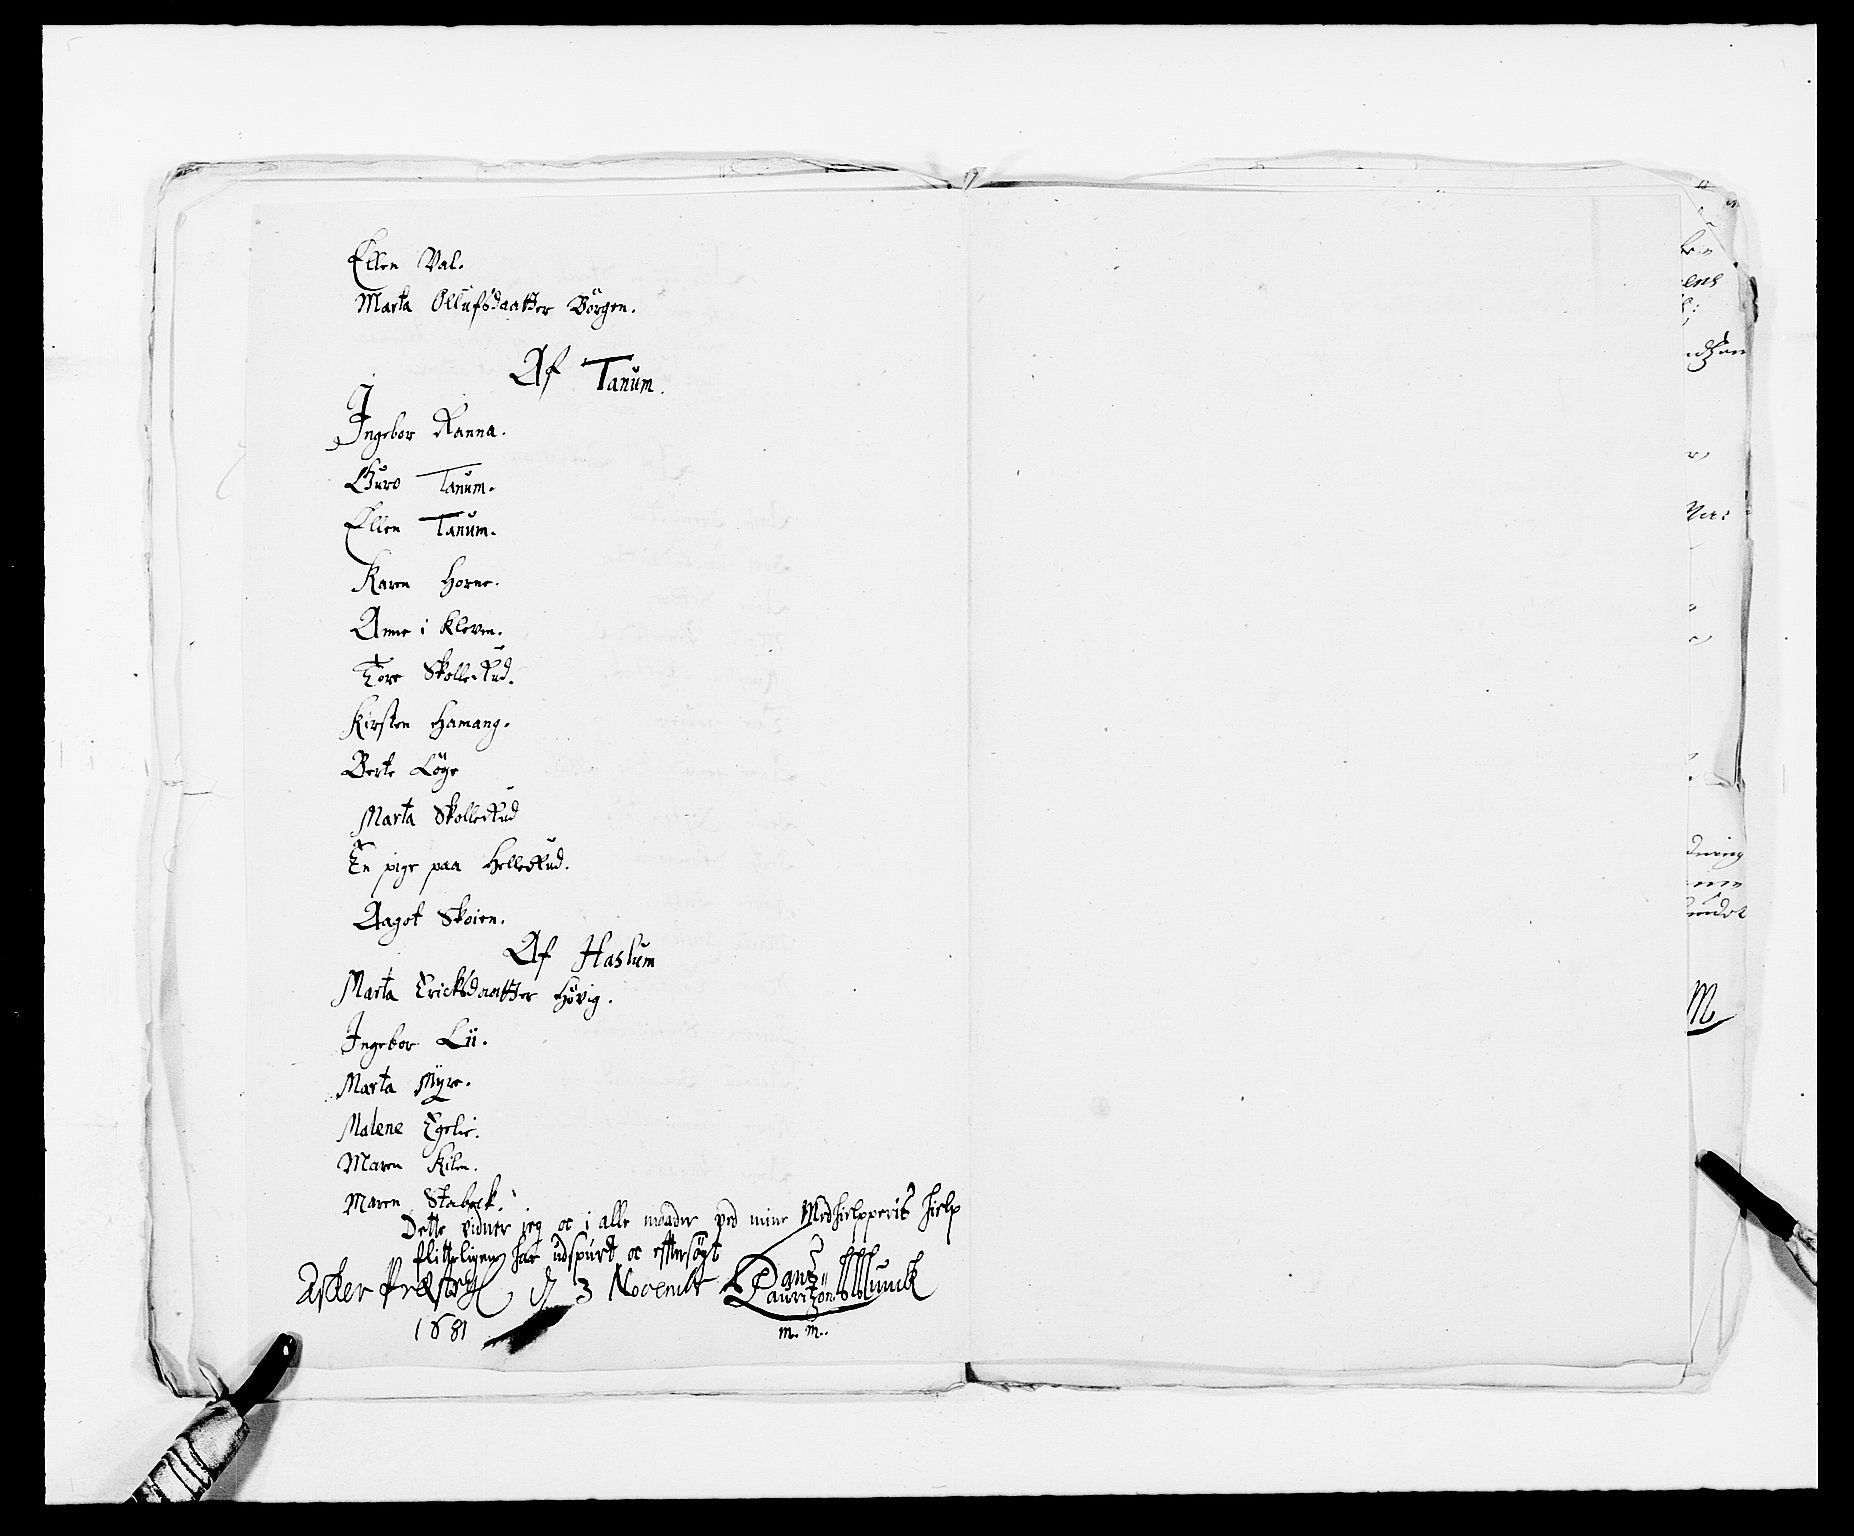 Ellen Val.
Marta Ollufsdaatter Börgen.
Af Tanum.
Ingebor Ranna.
Guro Tanum.
Ellen Tanum.
Karen Horne.
Anne i Kleven.
Tore Skollerud.
Kirsten Hamang.
Berte Löge
Marta Skollerud
En pige paa Hellerud.
Aagot Skoien.
Af Haslum
Marta Ericksdaatter Hövig.
Ingebor Lii.
Marta Myre.
Malene Egelie.
Maren Kilen.
Maren Stabeck.
Dette vidner jeg oc i alle maader ved mine Medhielpperis hielp
flitteligen har udspurt oc eftersögt
Asker Præstegl 3 Novembr
1681
Lauritzon Munck
m. m.